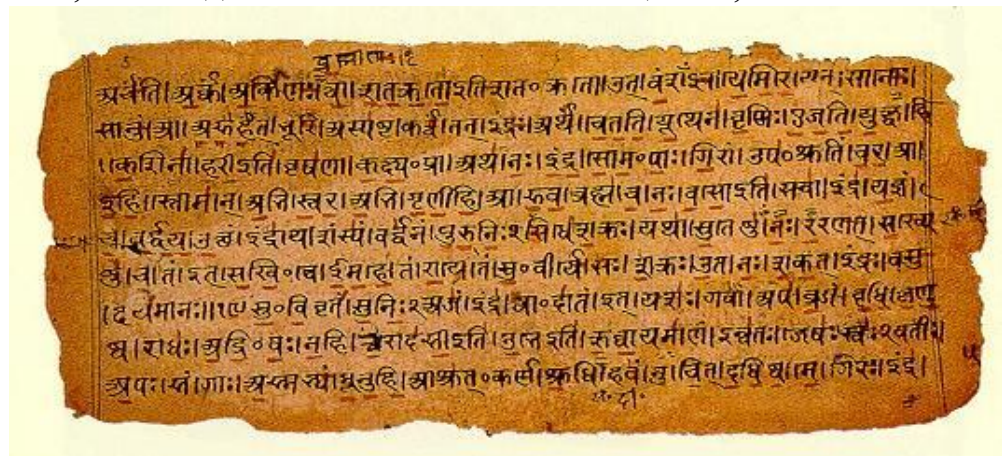 अर्चंति।अर्कं।अर्किणः।त्वा।शतक्रतो॒ऽइति॑शत॰क्रतो।उत्।वंशंऽइव।येमिरे।यत्।सानोः।
सानुं।आ।अरुहत्।भूरि।अस्पष्ट।कर्त्वं।तत्।इंद्रः।अर्थं।चेतति।यूथेन।वृष्णिः।एजति।युक्ष्व।हि
।केशिना।हरीऽइति।वृषणा।कक्ष्य॰प्रा।अथ।नः।इंद्र।सोम॰पाः।गिरां।उप॰श्रुतिं।चर।आ।
इहि।स्तोमान्।अभि।स्वर।अभि।गृणीहि।आ।रुव।ब्रह्म।च।नः।वसोऽइति।सचा।इंद्र।यज्ञं।
च।वर्द्धय।उक्थं।इंद्राय।शंस्यं।वर्द्धनं।पुरुनिःऽसिधे।शक्रः।यथा।सुतेषु।नः।ररणत्।सख्ये
षु।च।तं।इत्।सखि॰त्वे।ईमहे।तं।राये।तं।सु॰वीर्ये।सः।शक्रः।उत।नः।शकत्।इंद्रः।वसु
।दयमानः॥१९ सु॰विवृतं।सुनिःऽअजं।इंद्र।त्वा॰दातं।इत्।यशः।गवां।अप।व्रजं।वृधि।कृणु
ष्व।राधः।अद्रि॰वः।नहि।त्वा।रोदसीऽइति।उभेऽइति।ऋघायमाणं।इन्वतः।जेषः।स्वःऽवतीः।
अपः।सं।गाः।अस्मभ्यं।धूनुहि।आश्रुत्॰कर्ण।श्रुधि।हवं।नु।चित्।दधिष्व।मे।गिरः।इंद्र।